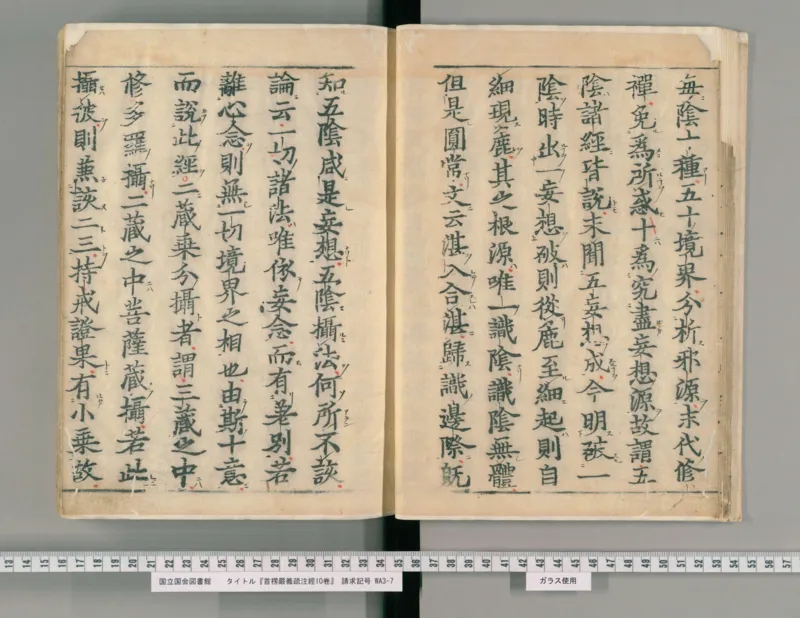 每陰十種五十境界分析邪源末代修
禪免爲所惑十爲究盡妄想源故謂五
陰諸經皆說未聞五妄想成今明破一
陰時出一妄想破則從麁至細起則自
細現麁其之根源唯一識陰識陰無體
但是圓常文云湛入合湛歸識邊際旣
知五陰咸是妄想五陰攝法何所不該
論云一切諸法唯依妄念而有差別若
離心念則無一切境界之相也由斯十意
而說此經二藏乘分攝者謂三藏之中
修多羅攝二藏之中菩薩藏攝若此
攝彼則兼該二三持戒證果有小乘故
13 14 15 16 17 18 19 20 21 22 23 24 25 26 27 28 29 30 31 32 33 34 35 36 37 38 39 40 41 42 43 44 45 46 47 48 49 50 51 52 53 54 55 56 57
国立国会図書館 タイトル『首楞嚴義疏注經10巻』 請求記号 WA3-7
ガラス使用